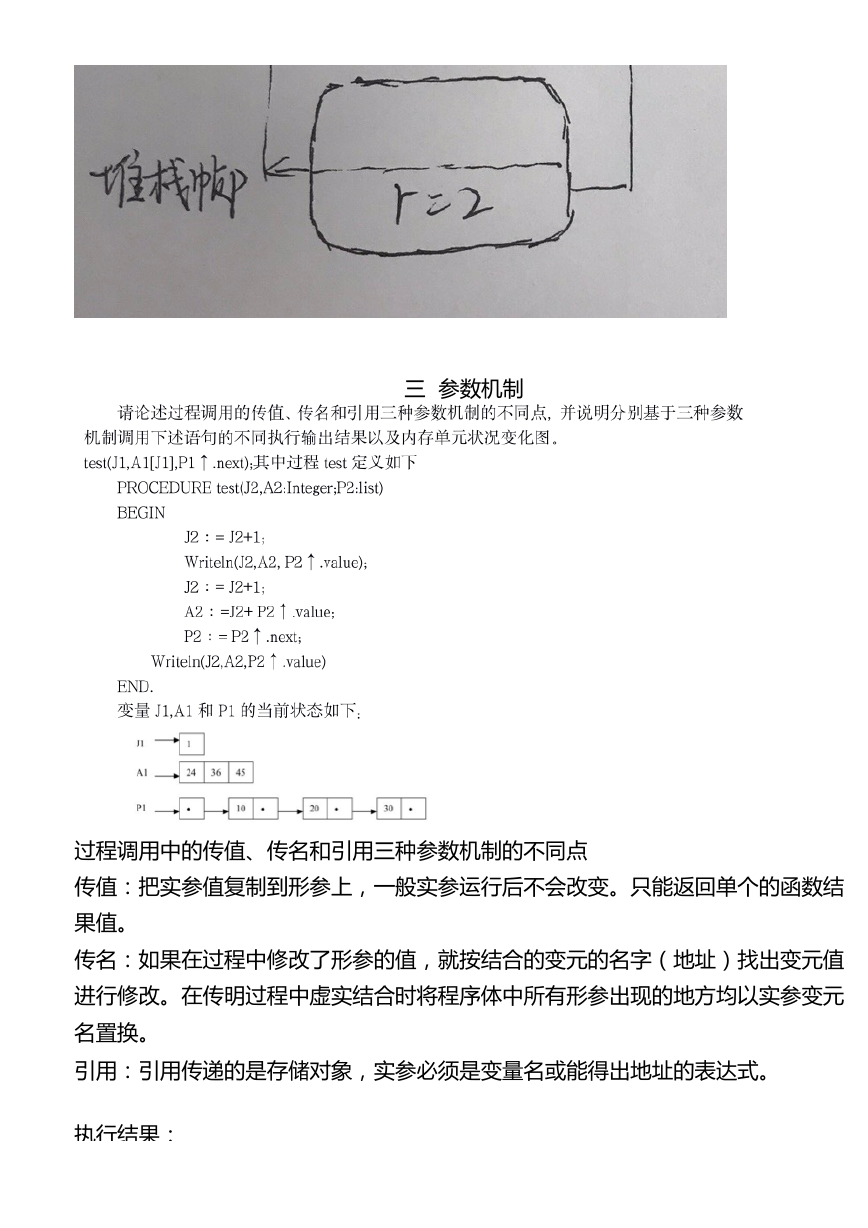 堆栈帧
r=2
三 参数机制
请论述过程调用的传值、传名和引用三种参数机制的不同点, 并说明分别基于三种参数
机制调用下述语句的不同执行输出结果以及内存单元状况变化图。
test(J1,A1[J1],P1↑.next);其中过程 test 定义如下
PROCEDURE test(J2,A2:Integer;P2:list)
BEGIN
J2：= J2+1;
Writeln(J2,A2, P2↑.value);
J2：= J2+1;
A2：=J2+ P2↑.value;
P2：= P2↑.next;
Writeln(J2,A2,P2↑.value)
END.
变量 J1,A1 和 P1 的当前状态如下:
J1 1
A1 24 36 45
P1 • 10 • 20 • 30 •
过程调用中的传值、传名和引用三种参数机制的不同点
传值：把实参值复制到形参上，一般实参运行后不会改变。只能返回单个的函数结
果值。
传名：如果在过程中修改了形参的值，就按结合的变元的名字（地址）找出变元值
进行修改。在传明过程中虚实结合时将程序体中所有形参出现的地方均以实参变元
名置换。
引用：引用传递的是存储对象，实参必须是变量名或能得出地址的表达式。
执行结果：